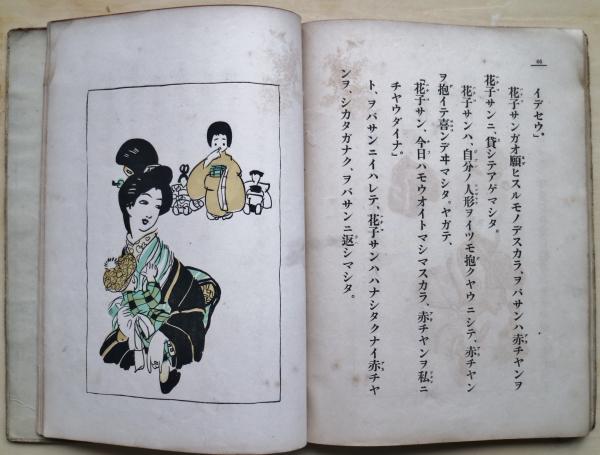 66
イデセウ」。
花子サンガオ願ヒスルモノデスカラ、ヲバサンハ赤チヤンヲ
花子サンニ、貸シテアゲマシタ。
花子サンハ、自分ノ人形ヲイツモ抱クヤウニシテ、赤チヤン
ヲ抱イテ喜ンデヰマシタ。ヤガテ、
『花子サン、今日ハモウオイトマシマスカラ、赤チヤンヲ私ニ
チヤウダイナ』
ト、ヲバサンニイハレテ、花子サンハハナシタクナイ赤チヤ
ンヲ、シカタガナク、ヲバサンニ返シマシタ。